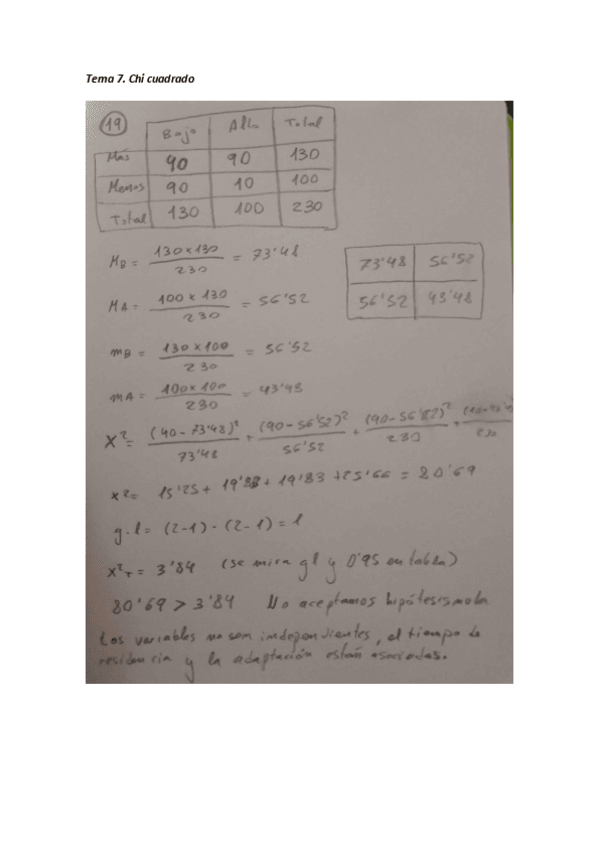 Tema 7. Chi cuadrado
19
Bajo Alto Total
Más 40 90 130
Menos 90 10 100
Total 130 100 230
MB = 130x130 / 230 = 73'48
73'48 56'52
MA = 100 x 130 / 230 = 56'52
56'52 43'48
mB = 130x100 / 230 = 56'52
mA = 100x100 / 230 = 43'48
X²= (40-73'48)² / 73'48 + (90-56'52)² / 56'52 + (90-56'52)² / 230 + / 230
x²= 15'25+ 19'83+ 19'83 +25'66 = 80'69
g.l= (2-1) · (2-1) = 1
x²T = 3'84 (se mira gl y 0'95 en tabla)
80'69 > 3'84 No aceptamos hipótesis nula
Las variables no son independientes, el tiempo de
residencia y la adaptación están asociadas.